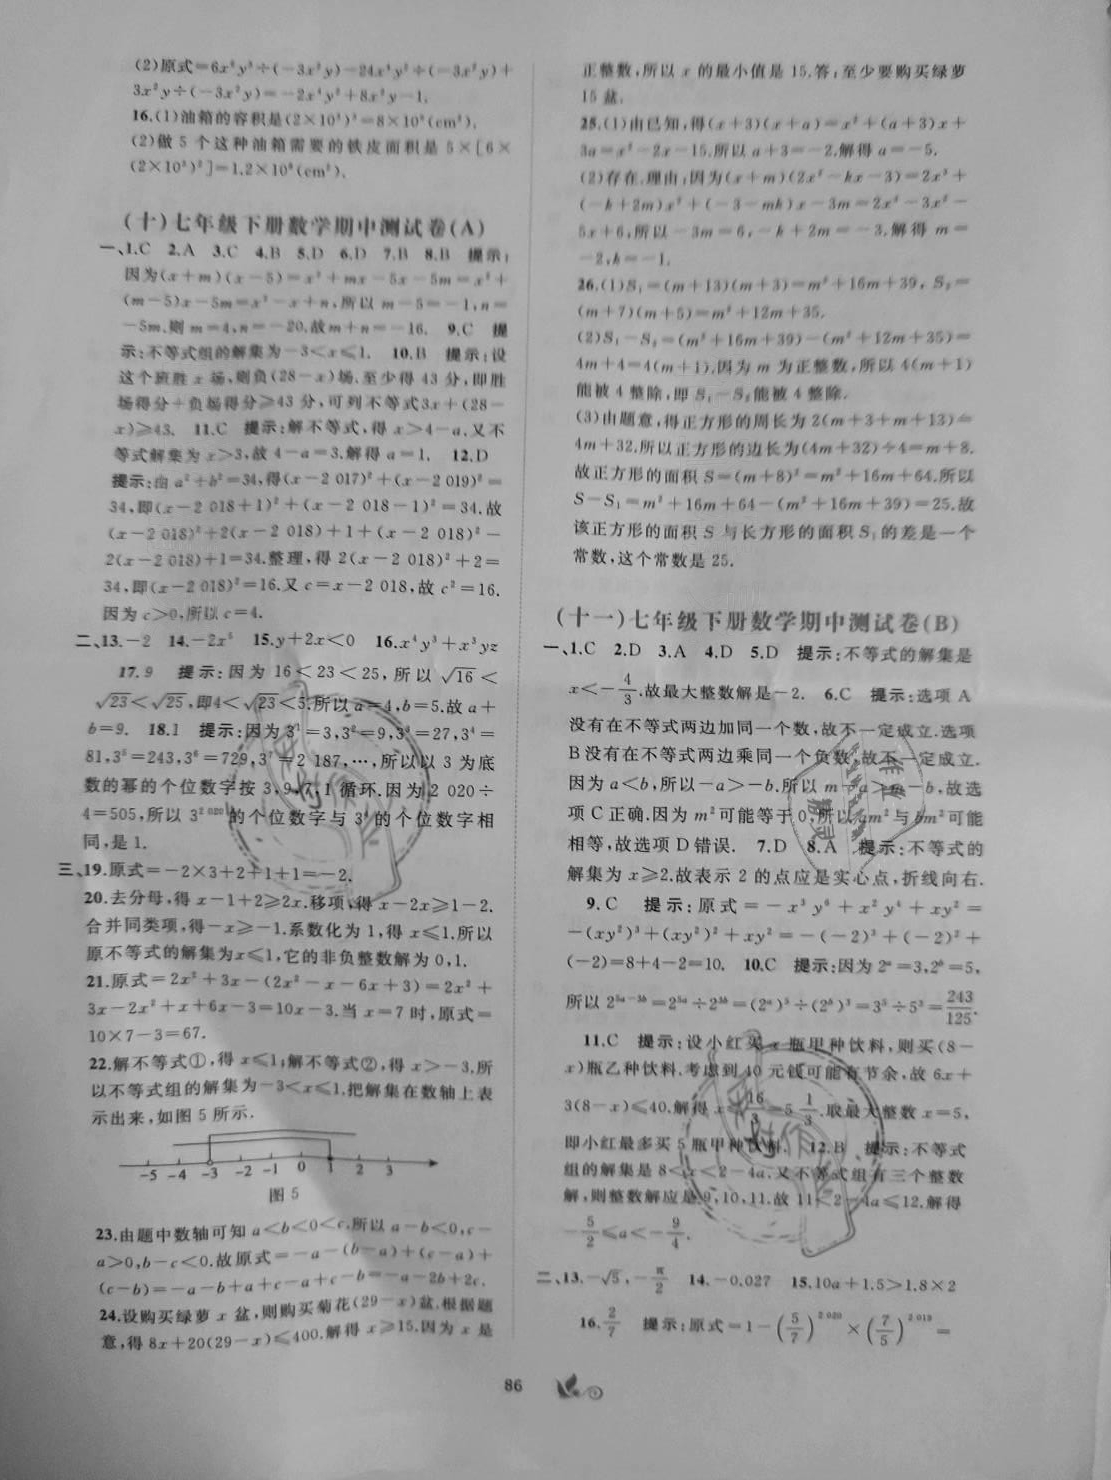 (2)原式=6x⁶y³÷(-3x²y)-24x⁴y²÷(-3x²y)+
3x²y÷(-3x²y)=-2x⁴y²+8x²y-1.
16.(1)油箱的容积是(2×10²)³=8×10⁶(cm³).
(2)做 5 个这种油箱需要的铁皮面积是 5×[6×
(2×10²)²]=1.2×10⁶(cm²).
(十)七年级下册数学期中测试卷(A)
一、1.C 2.A 3.C 4.B 5.D 6.D 7.B 8.B 提示:
因为(x+m)(x-5)=x²+mx-5x-5m=x²+
(m-5)x-5m=x²-x+n,所以 m-5=-1,n=
-5m.则 m=4,n=-20.故m+n=-16. 9.C 提
示:不等式组的解集为-3<x≤1. 10.B 提示:设
这个班胜 x 场,则负(28-x)场.至少得 43 分,即胜
场得分+负场得分≥43 分,可列不等式3x+(28-
x)≥43. 11.C 提示:解不等式,得 x>4-a.又不
等式解集为 x>3,故 4-a=3.解得 a=1. 12.D
提示:由 a²+b²=34,得(x-2 017)²+(x-2 019)²=
34,即(x-2 018+1)²+(x-2 018-1)²=34.故
(x-2 018)²+2(x-2 018)+1+(x-2 018)²-
2(x-2 018)+1=34.整理,得 2(x-2 018)²+2=
34,即(x-2 018)²=16.又 c=x-2 018,故 c²=16.
因为 c>0,所以 c=4.
二、13.-2 14.-2x⁵ 15.y+2x<0 16.x⁴y³+x³yz
17.9 提示:因为 16<23<25,所以 √16<
√23<√25,即4<√23<5.所以 a=4,b=5.故 a+
b=9. 18.1 提示:因为 3¹=3,3²=9,3³=27,3⁴=
81,3⁵=243,3⁶=729,3⁷=2 187,…,所以以 3 为底
数的幂的个位数字按 3,9,7,1 循环.因为 2 020÷
4=505,所以 3² ⁰²⁰的个位数字与 3⁴的个位数字相
同,是 1.
三、19.原式=-2×3+2+1+1=-2.
20.去分母,得 x-1+2≥2x.移项,得 x-2x≥1-2.
合并同类项,得-x≥-1.系数化为 1,得 x≤1.所以
原不等式的解集为x≤1,它的非负整数解为 0,1.
21.原式=2x²+3x-(2x²-x-6x+3)=2x²+
3x-2x²+x+6x-3=10x-3.当 x=7 时,原式=
10×7-3=67.
22.解不等式①,得 x≤1;解不等式②,得 x>-3,所
以不等式组的解集为-3<x≤1.把解集在数轴上表
示出来,如图 5 所示.
-5 -4 -3 -2 -1 0 1 2 3
图 5
23.由题中数轴可知 a<b<0<c.所以 a-b<0,c-
a>0,b-c<0.故原式=-a-(b-a)+(c-a)+
(c-b)=-a-b+a+c-a+c-b=-a-2b+2c.
24.设购买绿萝 x 盆,则购买菊花(29-x)盆.根据题
意,得 8x+20(29-x)≤400.解得 x≥15.因为 x 是
正整数,所以 x 的最小值是 15.答:至少要购买绿萝
15 盆.
25.(1)由已知,得(x+3)(x+a)=x²+(a+3)x+
3a=x²-2x-15.所以 a+3=-2.解得 a=-5.
(2)存在.理由:因为(x+m)(2x²-kx-3)=2x³+
(-k+2m)x²+(-3-mk)x-3m=2x³-3x²-
5x+6,所以-3m=6,-k+2m=-3.解得 m=
-2,k=-1.
26.(1)S₁=(m+13)(m+3)=m²+16m+39, S₂=
(m+7)(m+5)=m²+12m+35.
(2)S₁-S₂=(m²+16m+39)-(m²+12m+35)=
4m+4=4(m+1).因为 m 为正整数,所以 4(m+1)
能被 4 整除,即 S₁-S₂能被 4 整除.
(3)由题意,得正方形的周长为 2(m+3+m+13)=
4m+32.所以正方形的边长为(4m+32)÷4=m+8.
故正方形的面积 S=(m+8)²=m²+16m+64.所以
S-S₁=m²+16m+64-(m²+16m+39)=25.故
该正方形的面积 S 与长方形的面积 S₁的差是一个
常数,这个常数是 25.
(十一)七年级下册数学期中测试卷(B)
一、1.C 2.D 3.A 4.D 5.D 提示:不等式的解集是
x<-4/3.故最大整数解是-2. 6.C 提示:选项 A
没有在不等式两边加同一个数,故不一定成立.选项
B 没有在不等式两边乘同一个负数,故不一定成立.
因为 a<b,所以-a>-b.所以 m-a>m-b,故选
项 C 正确.因为 m²可能等于 0,所以 am²与 bm²可能
相等,故选项 D 错误. 7.D 8.A 提示:不等式的
解集为 x≥2.故表示 2 的点应是实心点,折线向右.
9.C 提示:原式=-x³y⁶+x²y⁴+xy²=
-(xy²)³+(xy²)²+xy²=-(-2)³+(-2)²+
(-2)=8+4-2=10. 10.C 提示:因为 2ᵃ=3,2ᵇ=5,
所以 2⁵ᵃ⁻³ᵇ=2⁵ᵃ÷2³ᵇ=(2ᵃ)⁵÷(2ᵇ)³=3⁵÷5³=243/125.
11.C 提示:设小红买 x 瓶甲种饮料,则买(8-
x)瓶乙种饮料.考虑到 40 元钱可能有节余,故 6x+
3(8-x)≤40.解得 x≤16/3=5 1/3.取最大整数 x=5,
即小红最多买 5 瓶甲种饮料. 12.B 提示:不等式
组的解集是 8<x<2-4a.又不等式组有三个整数
解,则整数解应是 9,10,11.故 11<2-4a≤12.解得
-5/2≤a<-9/4.
二、13.-√5,-π/2 14.-0.027 15.10a+1.5>1.8×2
16.2/7 提示:原式=1-(5/7)² ⁰²⁰×(7/5)² ⁰¹⁹=
86